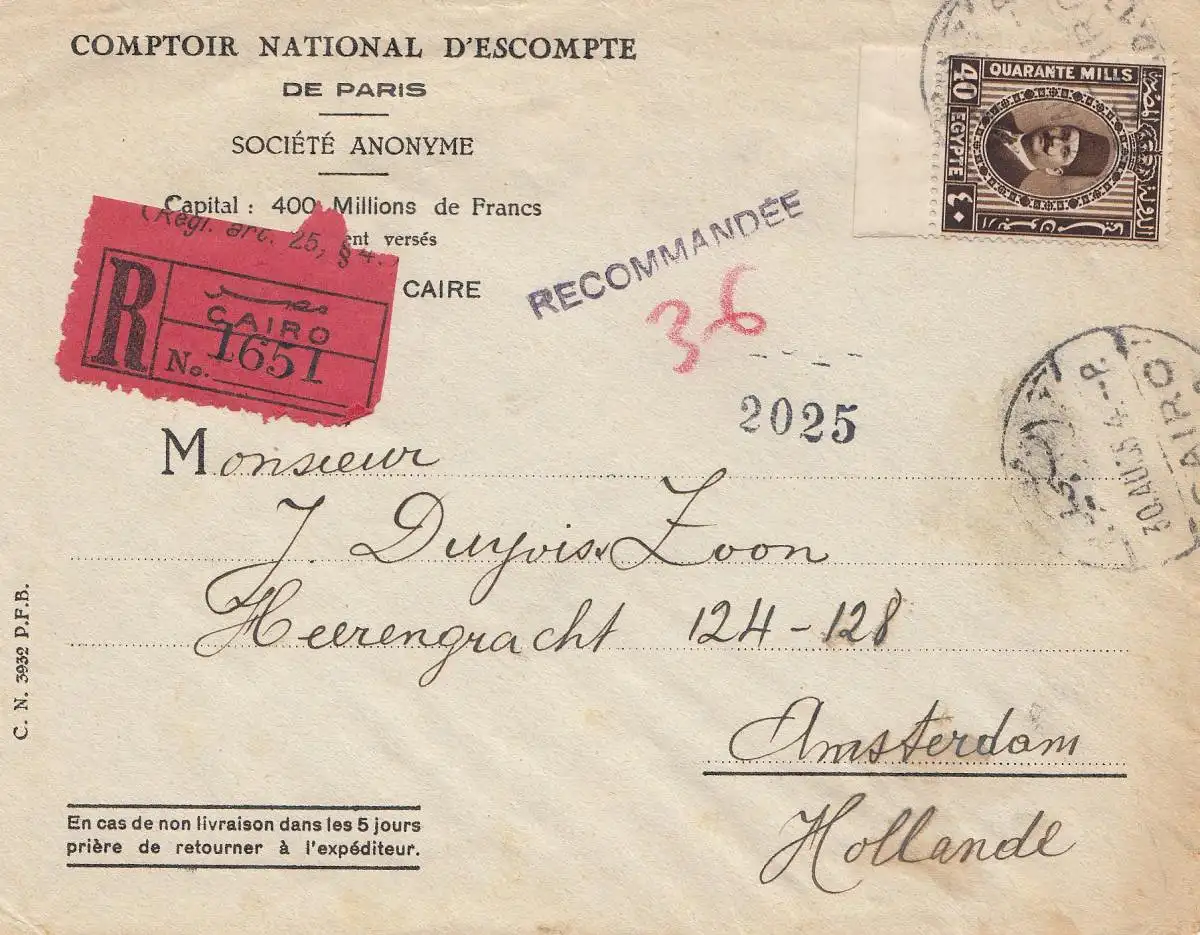 COMPTOIR NATIONAL D'ESCOMPTE
DE PARIS
SOCIÉTÉ ANONYME
Capital : 400 Millions de Francs
(Règl. art. 25, § 4.
ent versés
CAIRE
R
مصر
CAIRO
No. 1651
RECOMMANDÉE
36
2025
40 QUARANTE MILLS
EGYPTE
٤٠
CAIRO
30.AU.35.4-P.
Monsieur
J Duyvis Zoon
Heerengracht 124-128
Amsterdam
Hollande
C. N. 3932 P.F.B.
En cas de non livraison dans les 5 jours
prière de retourner à l'expéditeur.